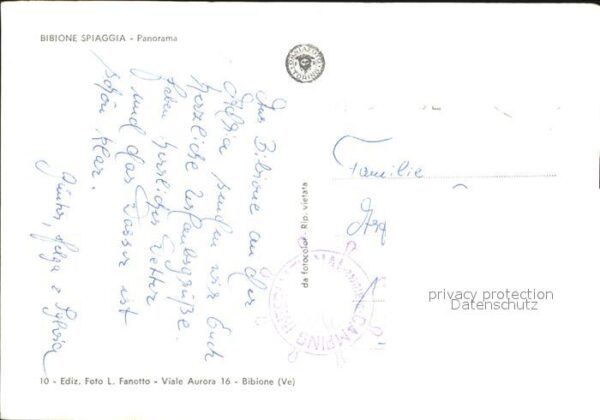 BIBIONE SPIAGGIA - Panorama
Aus Bibione an der
Adria senden wir Euch
herzliche Urlaubsgrüße.
Haben herrliches Wetter
und das Wasser ist
schön klar.
Günter, Helga + Sylvia
Familie
da fotocolor - Rip. vietata
CAMPING
privacy protection
Datenschutz
10 - Ediz. Foto L. Fanotto - Viale Aurora 16 - Bibione (Ve)